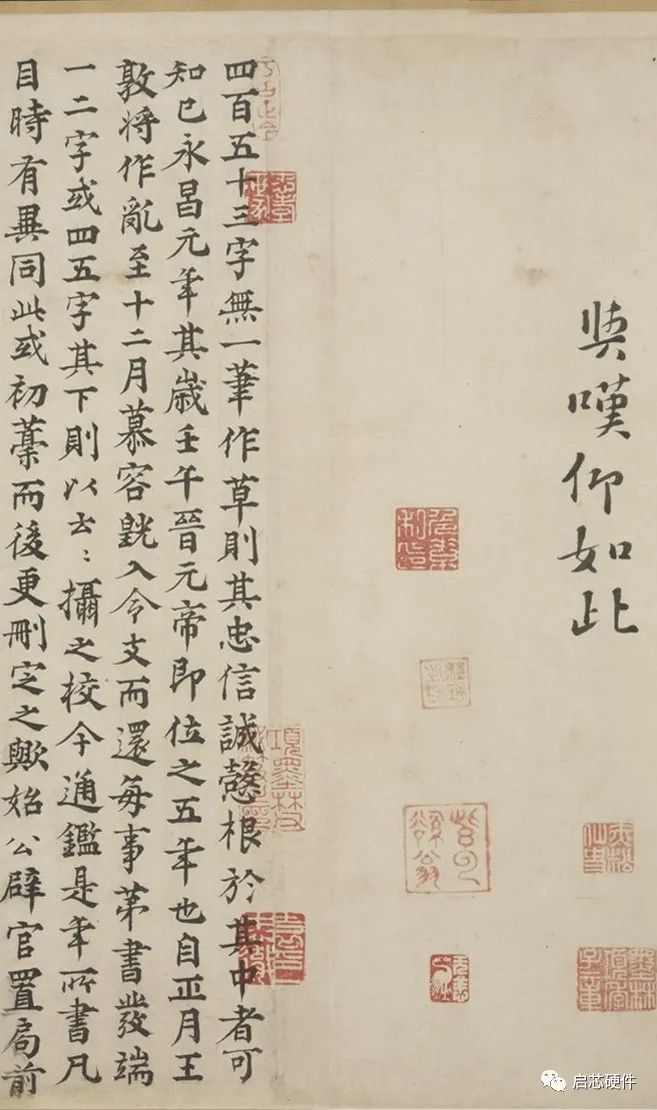 与嘆仰如此
四百五十三字無一筆作草則其忠信誠慤根於其中者可
知已永昌元年其歲壬午晉元帝即位之五年也自正月王
敦將作亂至十二月慕容皝入令支而還每事第書發端
一二字或四五字其下則以云〻攝之校今通鑑是年所書凡
目時有異同此或初藁而後更刪定之歟始公辟官置局前
启芯硬件